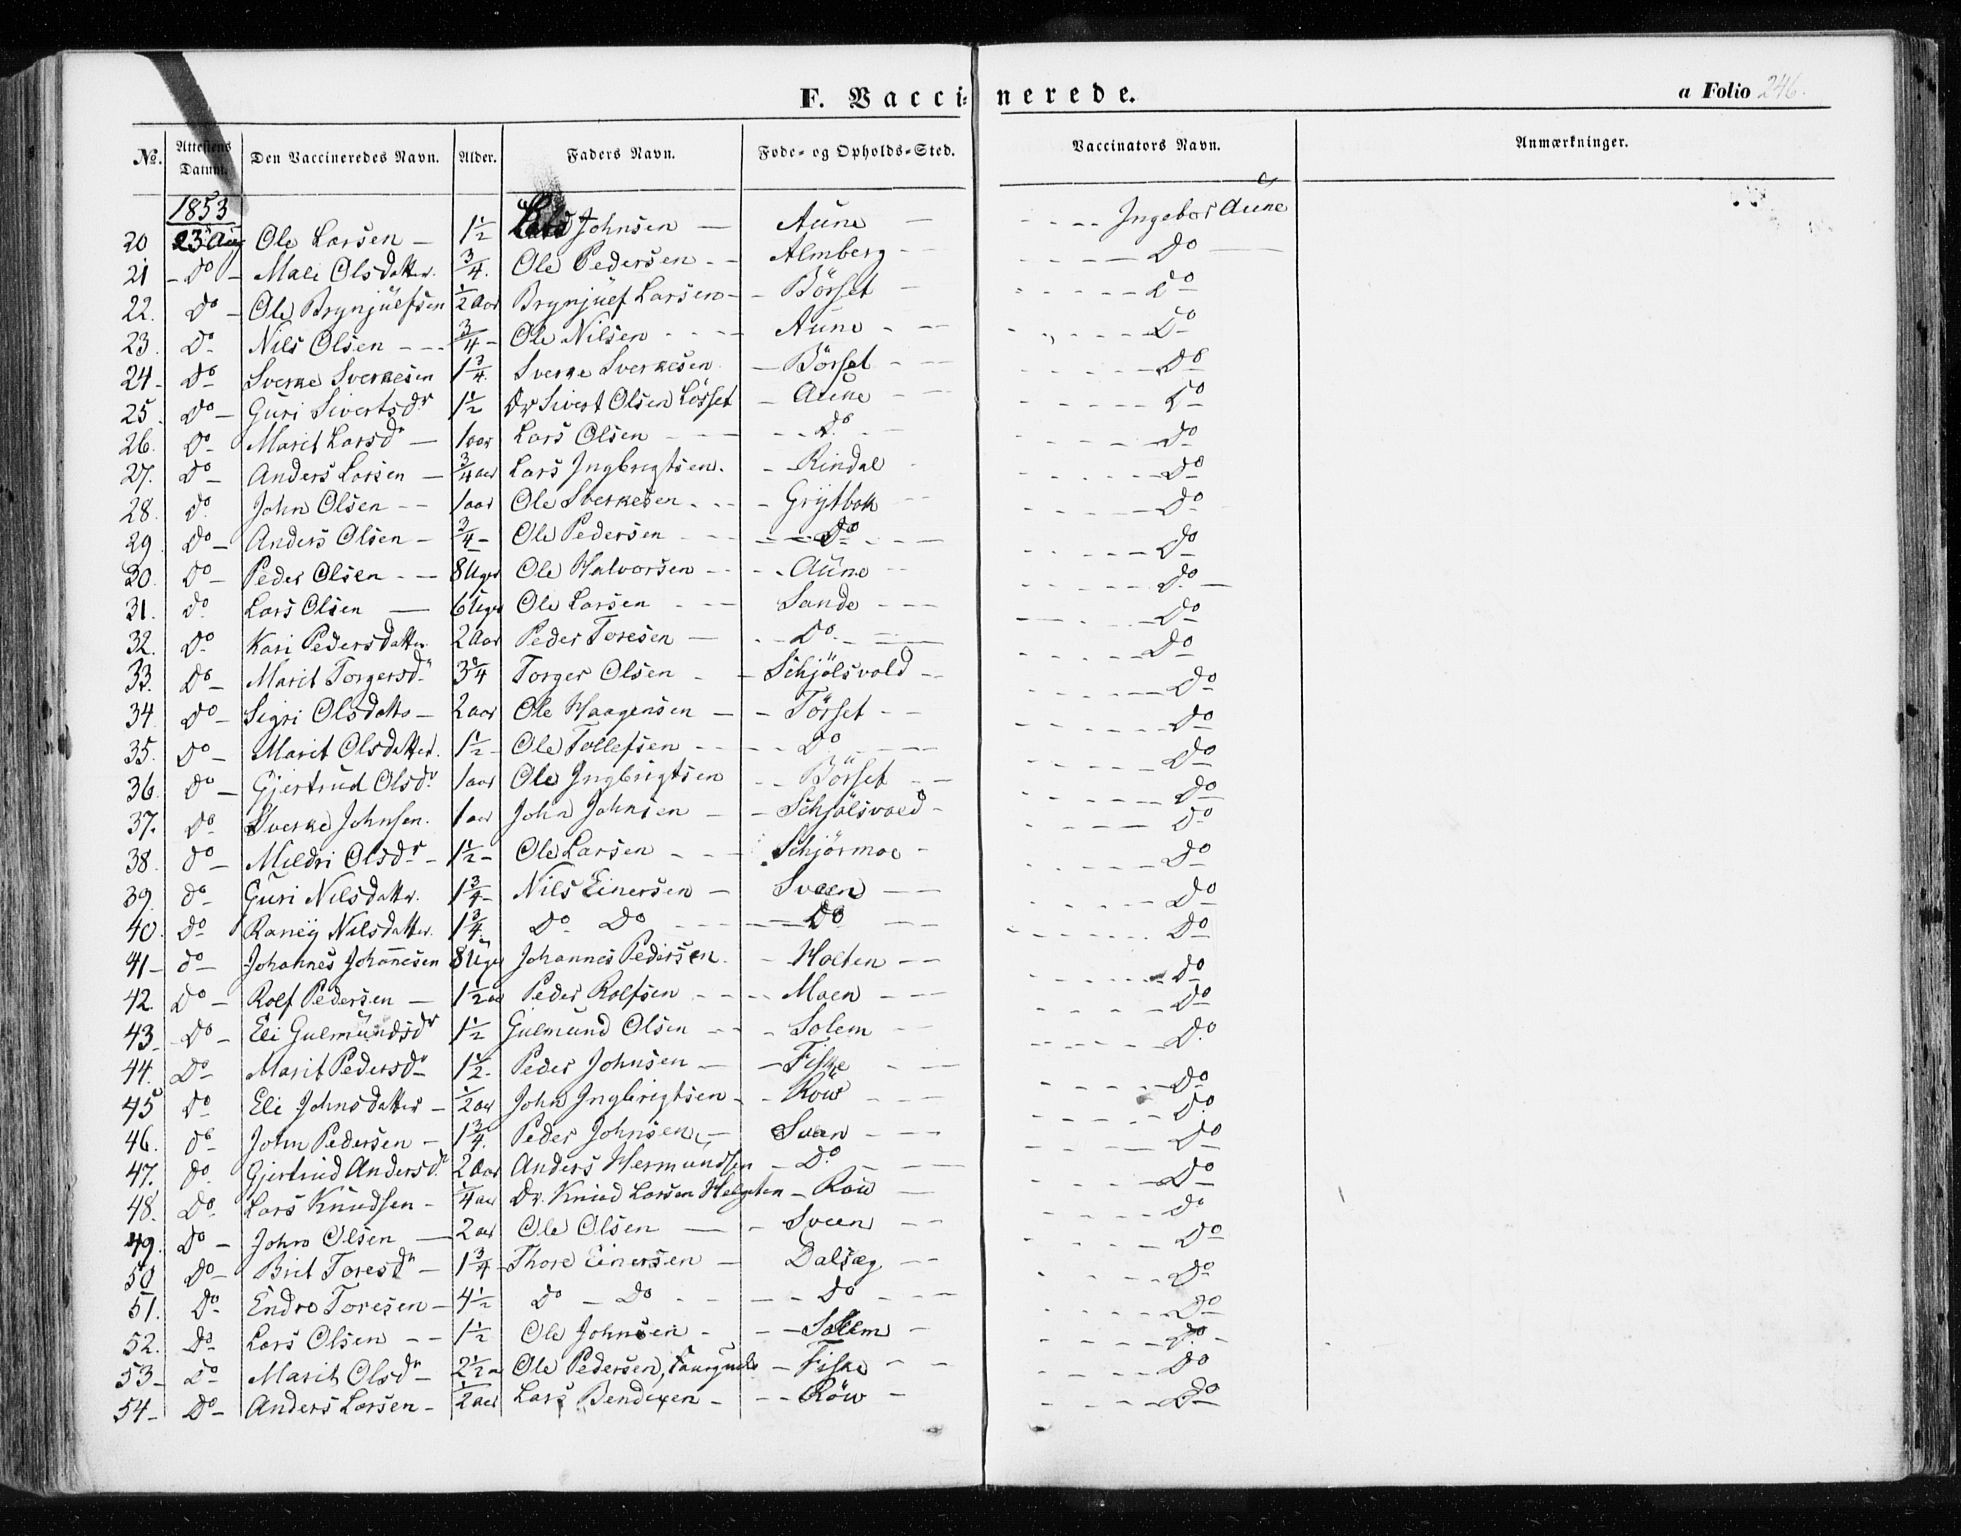 F. Vaccinerede.
a Folio 246.
No. Attestens Datum. Den Vaccineredes Navn. Alder. Faders Navn. Føde- og Opholds-Sted. Vaccinators Navn. Anmærkninger.
1853
20 23 Aug Ole Larsen – 1 1/2 Lars Johnsen – Aune – Ingebor Aune
21 – Do – Mali Olsdatter. 3/4. Ole Pedersen – Almberg – Do –
22. Do – Ole Brynjúlfsen 1/2 Aar Brynjúlf Larsen – Börset – Do
23. Do Nils Olsen – 3/4 – Ole Nilsen – Aune – Do
24 – Do Sverke Sverkesen 1 3/4. Sverke Sverkesen – Börset – Do
25. Do – Gúri Sivertsdr 1 1/2 Dr Sivert Olsen Lösset – Aúne – Do
26. Do Marit Larsdr – 1 aar Lars Olsen – Do – Do
27. Do – Anders Larsen – 3/4 aar Lars Ingbrigtsen. – Rindal – Do
28. do John Olsen – 1 aar Ole Sverkesen – Grÿtbak – Do
29 Do – Anders Olsen – 3/4 – Ole Pedersen – Do – Do
30. Do – Peder Olsen – 8 Uger Ole Halvorsen – Aúne – Do –
31. do Lars Olsen – 6 Uger Ole Larsen – Sande – Do
32. Do Kari Pedersdatter 2 Aar Peder Toresen – Do – Do
33. Do – Marit Torgersdr 3 3/4 Torger Olsen – Schjölsvold – Do
34 Do – Sigri Olsdatter – 2 aar Ole Haagensen – Törset – Do
35. Do – Marit Olsdatter. 1 1/2 – Ole Tollefsen – Do – Do
36. Do – Gjertrud Olsdr 1 aar Ole Ingbrigtsen – Börset – Do
37. Do Sverke Johnsen. 1 aar John Johnsen – Schjölsvold – Do
38. do – Mildri Olsdr – 1 1/2 – Ole Larsen – Schjörmoe – Do
39. do – Gúri Nilsdatter. 1 3/4 – Nils Einersen – Sveen – Do
40. Do Raneÿ Nilsdatter. 1 3/4. Do Do – Do – Do
41 – do – Johannes Johanesen 8 Uger Johannes Pedersen. – Holten – Do
42. Do – Rolf Pedersen – 1 1/2 aar Peder Rolfsen – Moen – Do
43 – Do – Eli Gulmundsdr 1 1/2 Gúlmund Olsen – Solem – Do
44. Do – Marit Pedersdr 1 1/2. Peder Johnsen – Fiske – Do
45 Do Eli Johnsdatter – 1/2 aar John Ingbrigtsen – Röw – Do
46. do – John Pedersen – 1 3/4. Peder Johnsen – Sveen – Do
47. do. Gjertrud Andersdr 2 Aar Anders Hermundsen – Do – Do
48. Do Lars Knúdsen – 1/4 aar Dr. Knúd Larsen Helgeton – Röw – Do
49. Do – John Olsen – 2 aar Ole Olsen – Sveen – Do
50 Do – Brit Toresdr – 1 3/4 – Thore Einersen – Dalsæg – Do
51. Do Endre Toresen – 4 1/2 Do – Do – Do – Do
52. Do Lars Olsen – 1 1/2 Ole Johnsen – Solem – Do –
53 – Do Marit Olsdr – 2 1/2 a Ole Pedersen, – Fiske – Do
54 – Do – Anders Larsen – 1/2 aar Lars Bendixen – Röw – Do